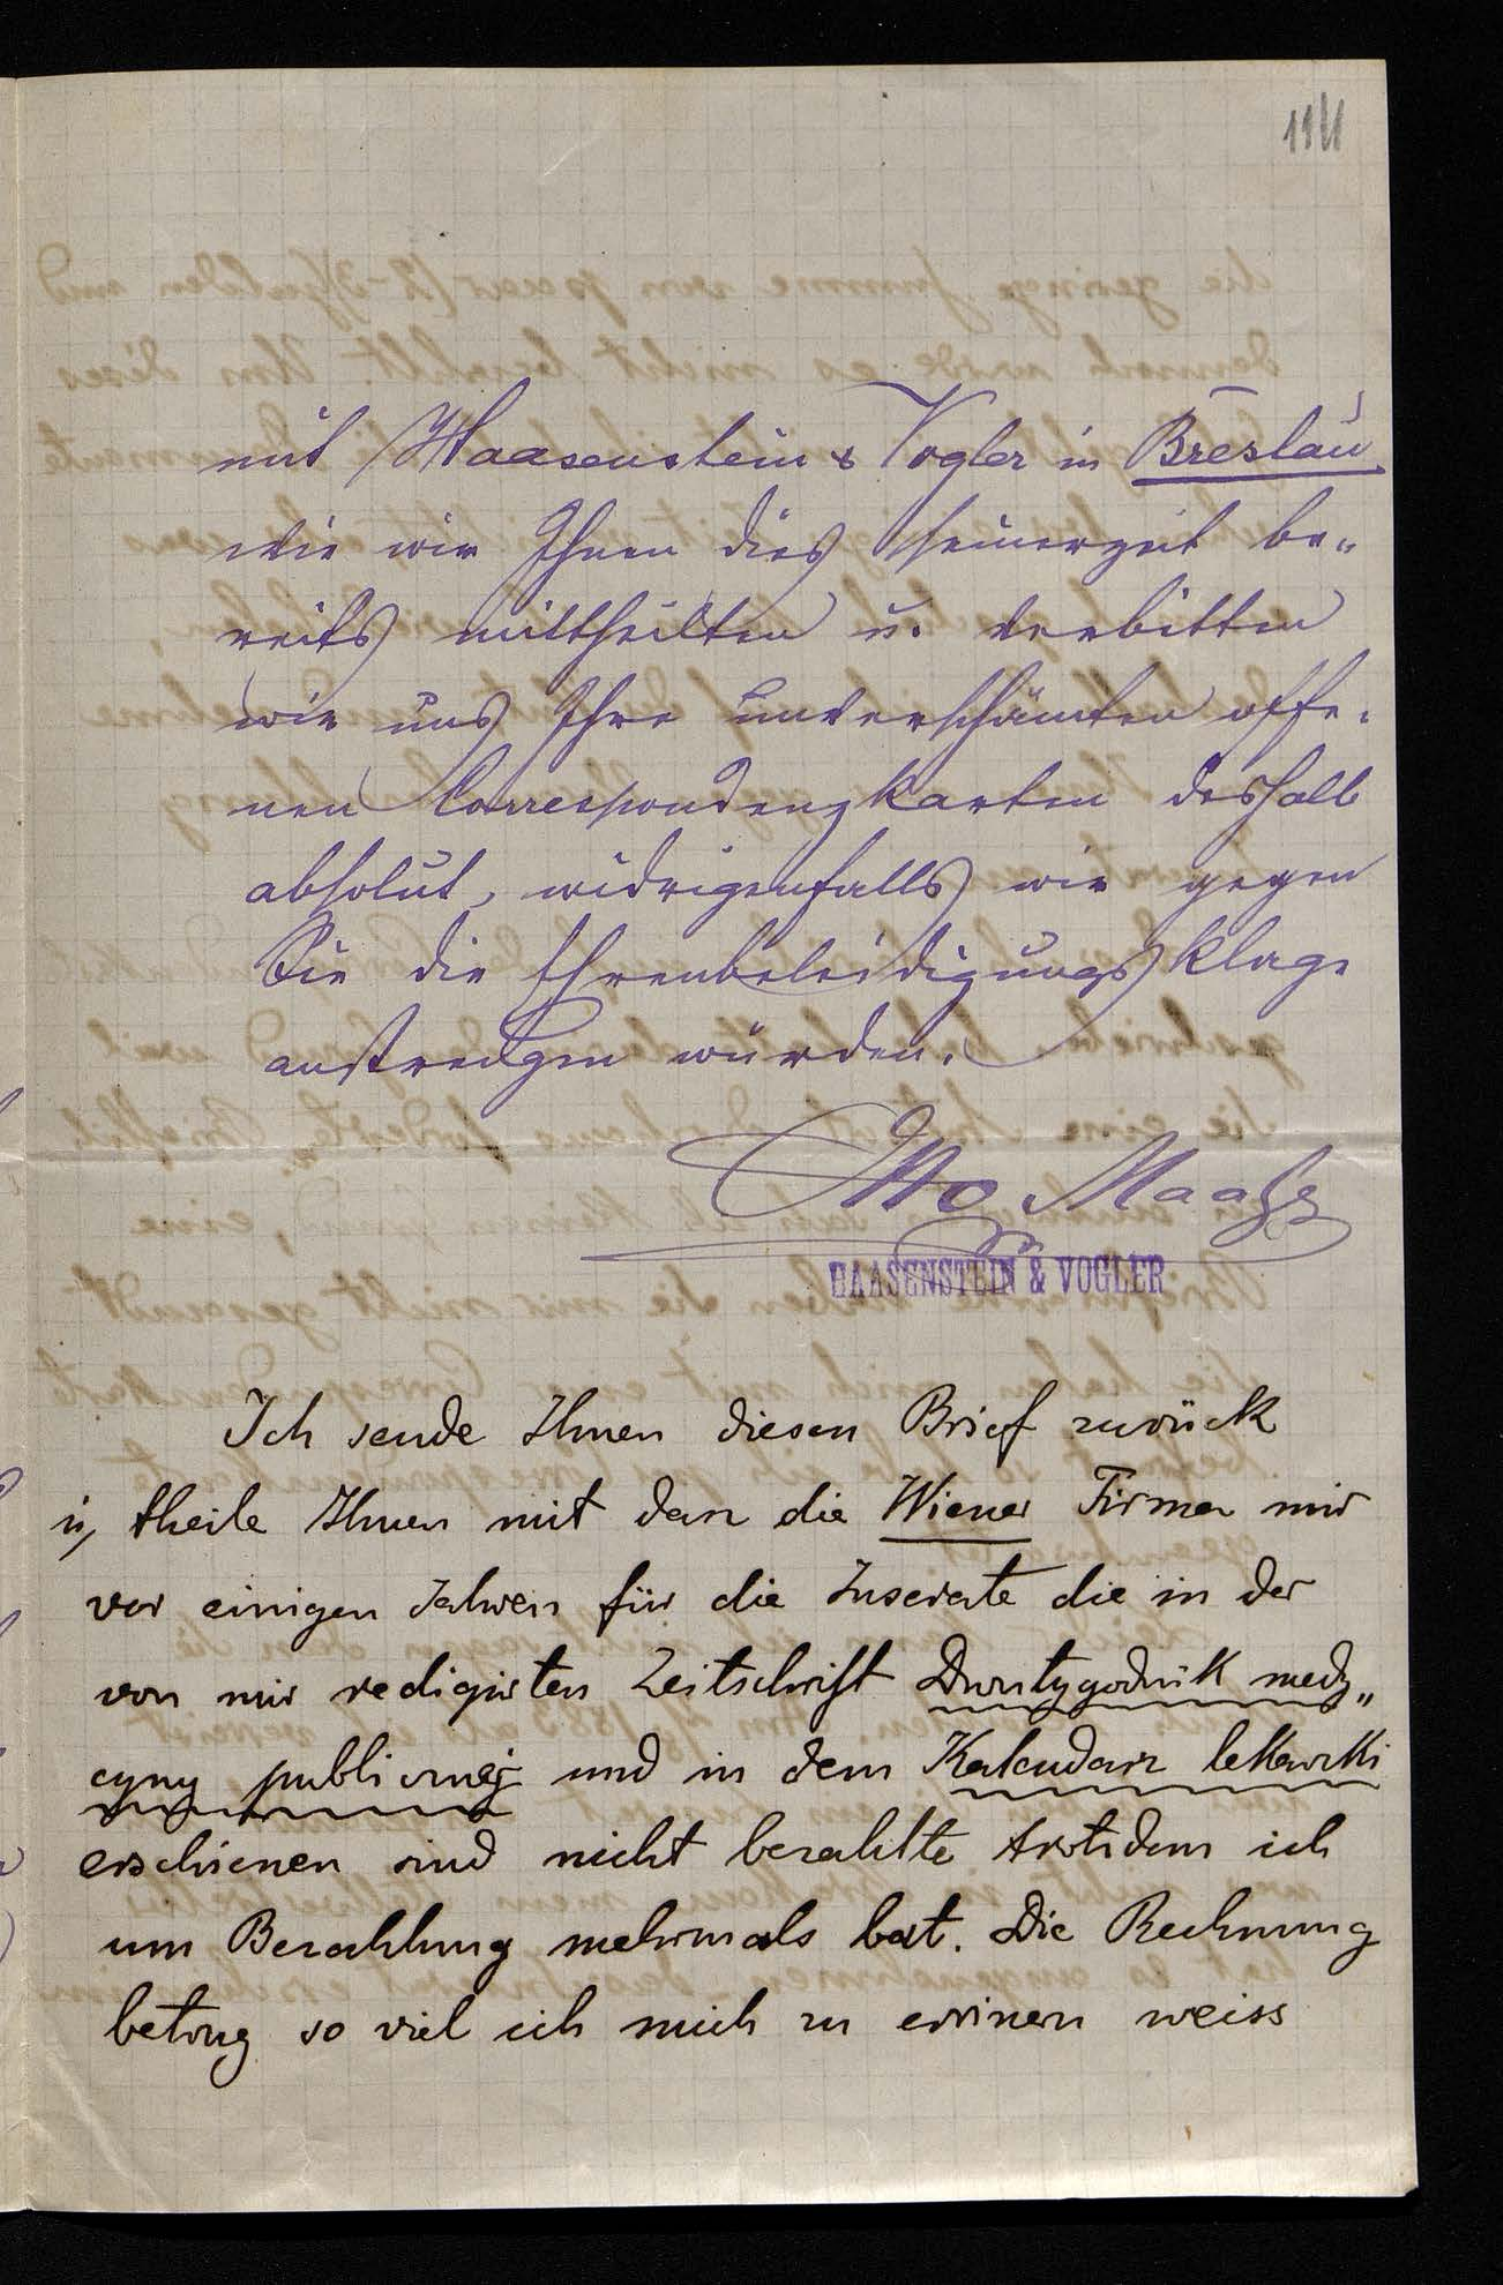 mit Haasenstein & Vogler in Breslau
wie wir Ihnen dies seinerzeit be„
reits mittheilten u. verbitten
wir uns Ihre unverschämten offe„
nen Correspondenzkarten deshalb
absolut, widrigenfalls wir gegen
Sie die Ehrenbeleidigungsklage
anstrengen würden.
Otto Maaß
HAASENSTEIN & VOGLER
Ich sende Ihnen diesen Brief zurück
u, theile Ihnen mit dan die Wiener Firma mir
vor einigen Jahren für die Inserate die in der
von mir redigirten Zeitschrift Dwutygodnik medy„
cyny publicznej und in dem Kalendarz lekarski
erschienen sind nicht bezahlte trotzdem ich
um Bezahlung mehrmals bat. Die Rechnung
betrug so viel ich mich zu errinern weiss